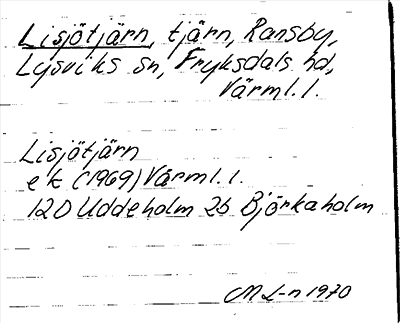 Lisjötjärn, tjärn, Ransby,
Lysviks sn, Fryksdals hd,
Värml. l.
Lisjötjärn
e k (1969) Värml. l.
12D Uddeholm 2b Björkaholm
M L-n 1970